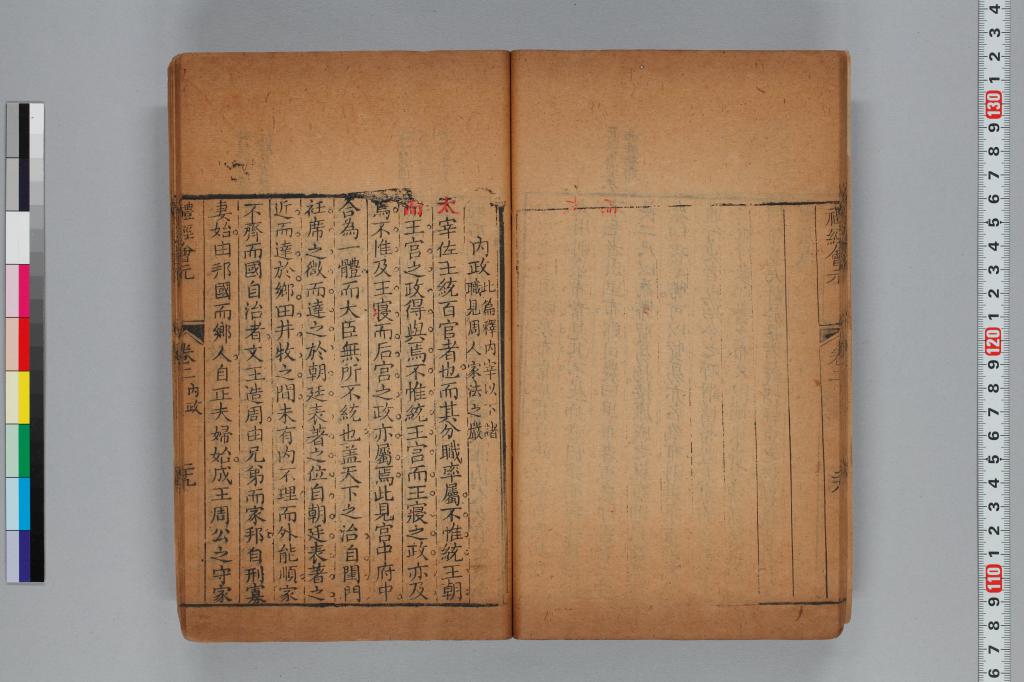 禮經會元
卷二
內政 此篇釋內宰以下諸
職見周人家法之嚴
太宰佐王統百官者也而其分職率屬不惟統王朝
而王宮之政得與焉不惟統王宮而王寢之政亦及
焉不惟及王寢而后宮之政亦屬焉此見宮中府中
合為一體而大臣無所不統也盖天下之治自閨門
衽席之微而達之於朝廷表著之位自朝廷表著之
近而達於鄉田井牧之間未有內不理而外能順家
不齊而國自治者文王造周由兄弟而家邦自刑寡
妻始由邦國而鄉人自正夫婦始成王周公之守家
禮經會元
卷二 內政